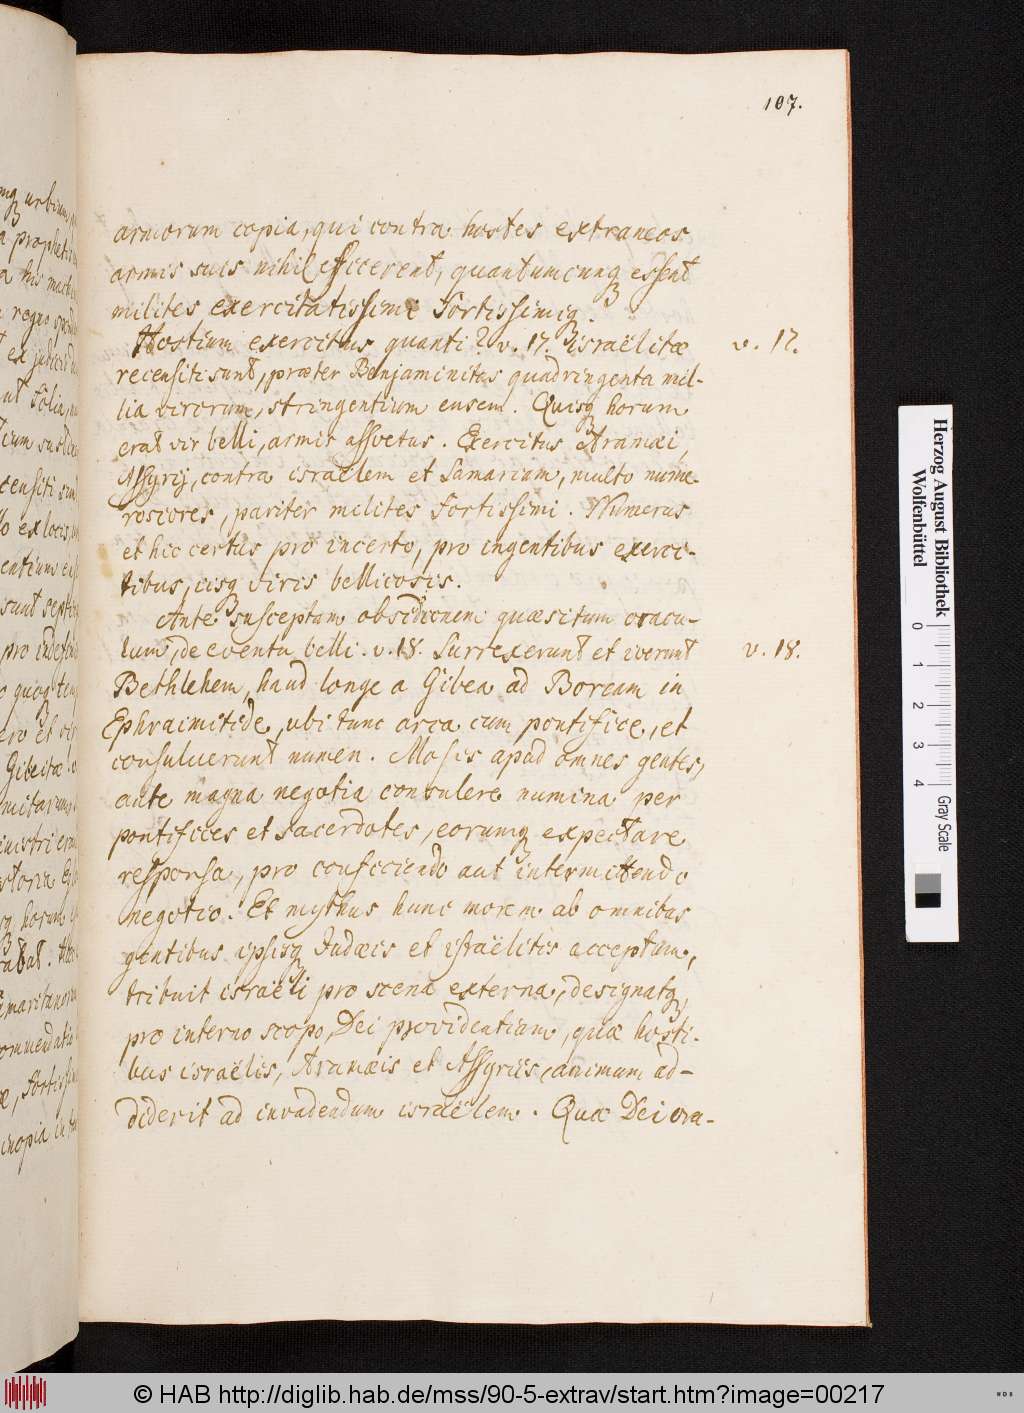 107.
armorum copia, qui contra hostes extraneos
armis suis nihil efficerent, quantumcunqꝫ essent
milites exercitatissimi fortissimiqꝫ.
Hostium exercitus quanti? v. 17. israëlitæ
v. 17.
recensiti sunt, præter Benjaminitas quadringenta mil-
lia virorum, stringentium ensem. Quisqꝫ horum
erat vir belli, armis assvetus. Exercitus Aramæi,
Assyrij, contra israëlem et Samariam, multo nume-
rosiores, pariter milites fortissimi. Numerus
et hic certus pro incerto, pro ingentibus exerci-
tibus, iisqꝫ viris bellicosis.
Ante susceptam obsidionem quæsitum oracu-
lum, de eventu belli. v. 18. Surrexerunt et iverunt
v. 18.
Bethlehem, haud longe a Gibea ad Boream in
Ephraimitide, ubi tunc arca cum pontifice, et
consuluerunt numen. Mos is apud omnes gentes,
ante magna negotia consulere numina per
pontifices et sacerdotes, eorumqꝫ expectare
responsa, pro conficiendo aut intermittendo
negotio. Et mythus hunc morem ab omnibus
gentibus ipsisqꝫ Judæis et israëlitis acceptum,
tribuit israëli pro scena externa, designatqꝫ,
pro interno scopo, Dei providentiam, quæ hosti-
bus israëlis, Aramæis et Assyriis, animum ad-
diderit ad invadendum israëlem. Quæ Dei ora-
Herzog August Bibliothek
Wolfenbüttel
0 1 2 3 4 Gray Scale
© HAB http://diglib.hab.de/mss/90-5-extrav/start.htm?image=00217